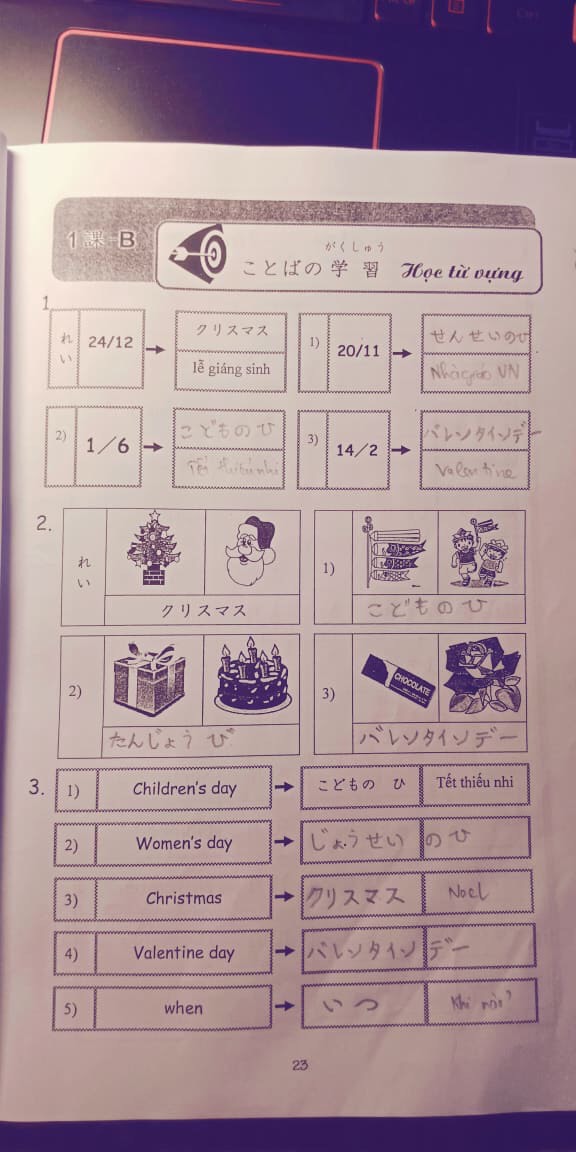 1 課 B
がくしゅう
ことばの 学 習 Học từ vựng
1
れい 24/12
クリスマス
lễ giáng sinh
1) 20/11
せんせいのひ
Nhà giáo VN
2) 1/6
こどものひ
Tết thiếu nhi
3) 14/2
バレンタインデー
Valentine
2.
れい
クリスマス
1)
こどものひ
2)
たんじょうび
3)
CHOCOLATE
バレンタインデー
3.
1) Children's day こどもの ひ Tết thiếu nhi
2) Women's day じょうせい のひ
3) Christmas クリスマス Noel
4) Valentine day バレンタイン デー
5) when いつ Khi nào?
23